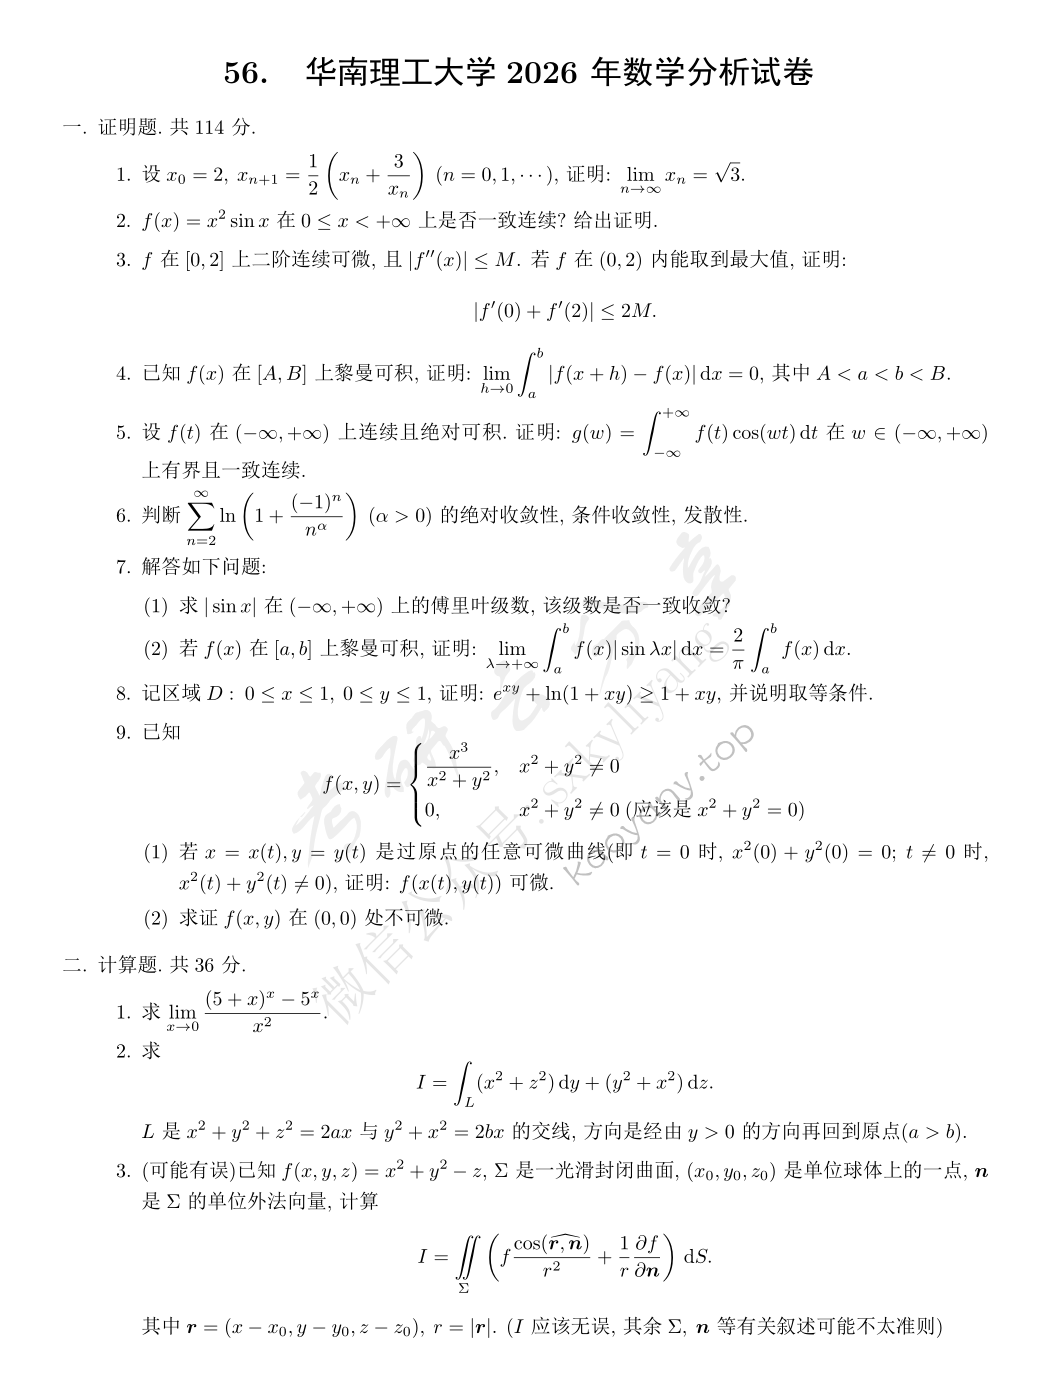 56. 华南理工大学 2026 年数学分析试卷
一. 证明题. 共 114 分.
1. 设 $x_0 = 2$, $x_{n+1} = \frac{1}{2}\left(x_n + \frac{3}{x_n}\right)$ $(n = 0, 1, \cdots)$, 证明: $\lim_{n\to\infty} x_n = \sqrt{3}$.
2. $f(x) = x^2 \sin x$ 在 $0 \leq x < +\infty$ 上是否一致连续? 给出证明.
3. $f$ 在 $[0, 2]$ 上二阶连续可微, 且 $|f''(x)| \leq M$. 若 $f$ 在 $(0, 2)$ 内能取到最大值, 证明:
$|f'(0) + f'(2)| \leq 2M.$
4. 已知 $f(x)$ 在 $[A, B]$ 上黎曼可积, 证明: $\lim_{h\to 0} \int_a^b |f(x + h) - f(x)| \, \mathrm{d}x = 0$, 其中 $A < a < b < B$.
5. 设 $f(t)$ 在 $(-\infty, +\infty)$ 上连续且绝对可积. 证明: $g(w) = \int_{-\infty}^{+\infty} f(t) \cos(wt) \, \mathrm{d}t$ 在 $w \in (-\infty, +\infty)$
上有界且一致连续.
6. 判断 $\sum_{n=2}^{\infty} \ln\left(1 + \frac{(-1)^n}{n^\alpha}\right)$ $(\alpha > 0)$ 的绝对收敛性, 条件收敛性, 发散性.
7. 解答如下问题:
(1) 求 $|\sin x|$ 在 $(-\infty, +\infty)$ 上的傅里叶级数, 该级数是否一致收敛?
(2) 若 $f(x)$ 在 $[a, b]$ 上黎曼可积, 证明: $\lim_{\lambda\to+\infty} \int_a^b f(x)|\sin \lambda x| \, \mathrm{d}x = \frac{2}{\pi} \int_a^b f(x) \, \mathrm{d}x$.
8. 记区域 $D: 0 \leq x \leq 1, 0 \leq y \leq 1$, 证明: $e^{xy} + \ln(1 + xy) \geq 1 + xy$, 并说明取等条件.
9. 已知
$f(x, y) = \begin{cases} \frac{x^3}{x^2 + y^2}, & x^2 + y^2 \neq 0 \\ 0, & x^2 + y^2 \neq 0 \text{ (应该是 } x^2 + y^2 = 0) \end{cases}$
(1) 若 $x = x(t), y = y(t)$ 是过原点的任意可微曲线(即 $t = 0$ 时, $x^2(0) + y^2(0) = 0$; $t \neq 0$ 时,
$x^2(t) + y^2(t) \neq 0$), 证明: $f(x(t), y(t))$ 可微.
(2) 求证 $f(x, y)$ 在 $(0, 0)$ 处不可微.
二. 计算题. 共 36 分.
1. 求 $\lim_{x\to 0} \frac{(5 + x)^x - 5^x}{x^2}$.
2. 求
$I = \int_L (x^2 + z^2) \, \mathrm{d}y + (y^2 + x^2) \, \mathrm{d}z.$
$L$ 是 $x^2 + y^2 + z^2 = 2ax$ 与 $y^2 + x^2 = 2bx$ 的交线, 方向是经由 $y > 0$ 的方向再回到原点$(a > b)$.
3. (可能有误)已知 $f(x, y, z) = x^2 + y^2 - z$, $\Sigma$ 是一光滑封闭曲面, $(x_0, y_0, z_0)$ 是单位球体上的一点, $\boldsymbol{n}$
是 $\Sigma$ 的单位外法向量, 计算
$I = \iint_\Sigma \left( f \frac{\cos(\widehat{\boldsymbol{r}, \boldsymbol{n}})}{r^2} + \frac{1}{r} \frac{\partial f}{\partial \boldsymbol{n}} \right) \mathrm{d}S.$
其中 $\boldsymbol{r} = (x - x_0, y - y_0, z - z_0)$, $r = |\boldsymbol{r}|$. ($I$ 应该无误, 其余 $\Sigma$, $\boldsymbol{n}$ 等有关叙述可能不太准则)
考研云分享
微信公众号: sxkyliyang
kaoyany.top